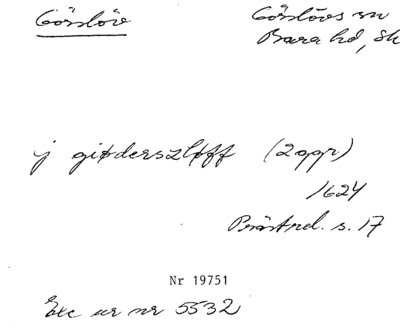 Görslöv
Görslövs sn
Bara hd, Sk
j giøderszløff (2 ggr)
1624
Prästrel. s. 17
Nr 19751
Exc ur nr 5532